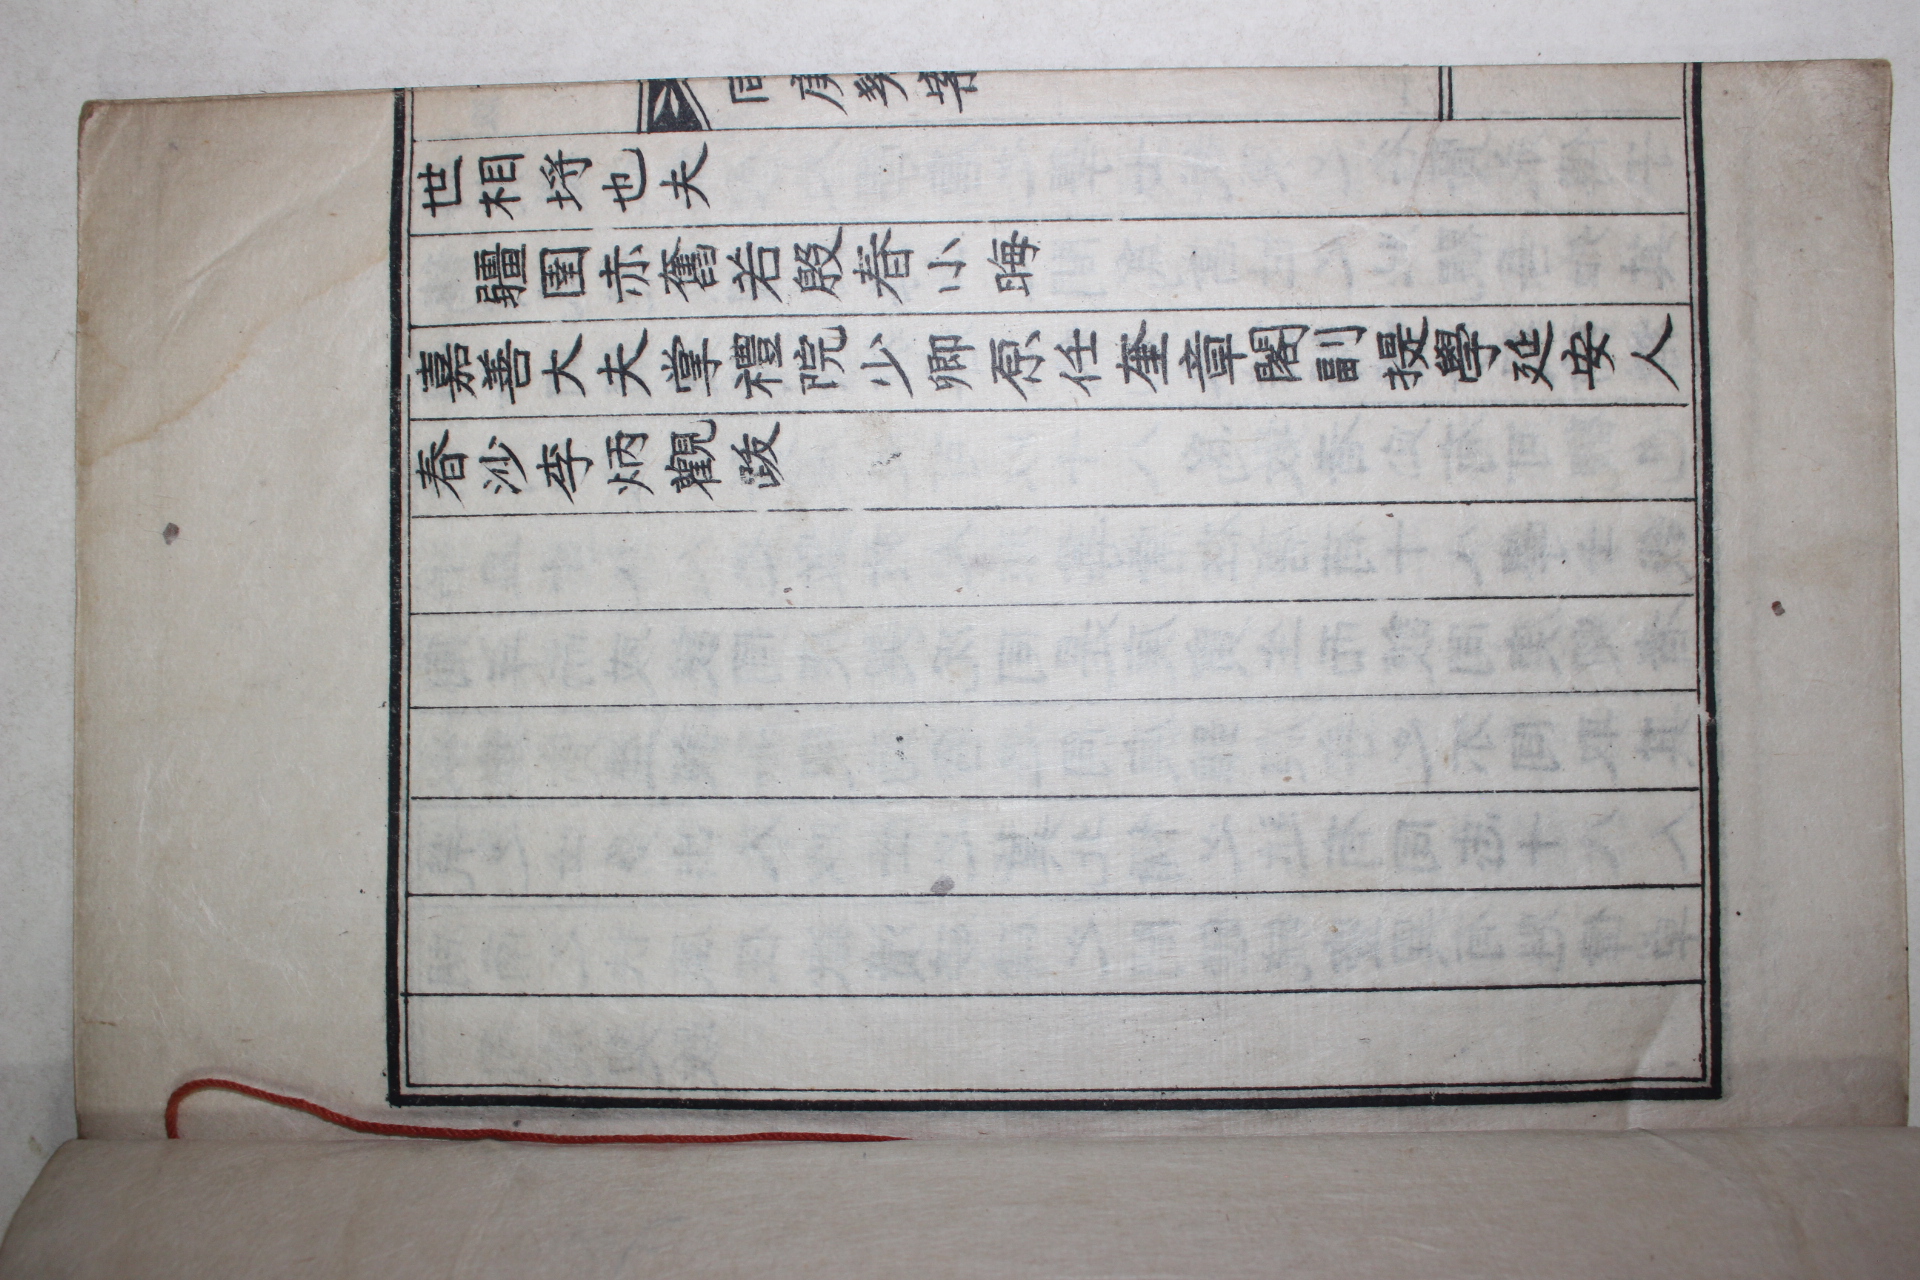 世相埒也夫
疆圉赤奮若殷春小晦
嘉善大夫掌禮院少卿原任奎章閣副提學延安人
春沙李炳觀跋